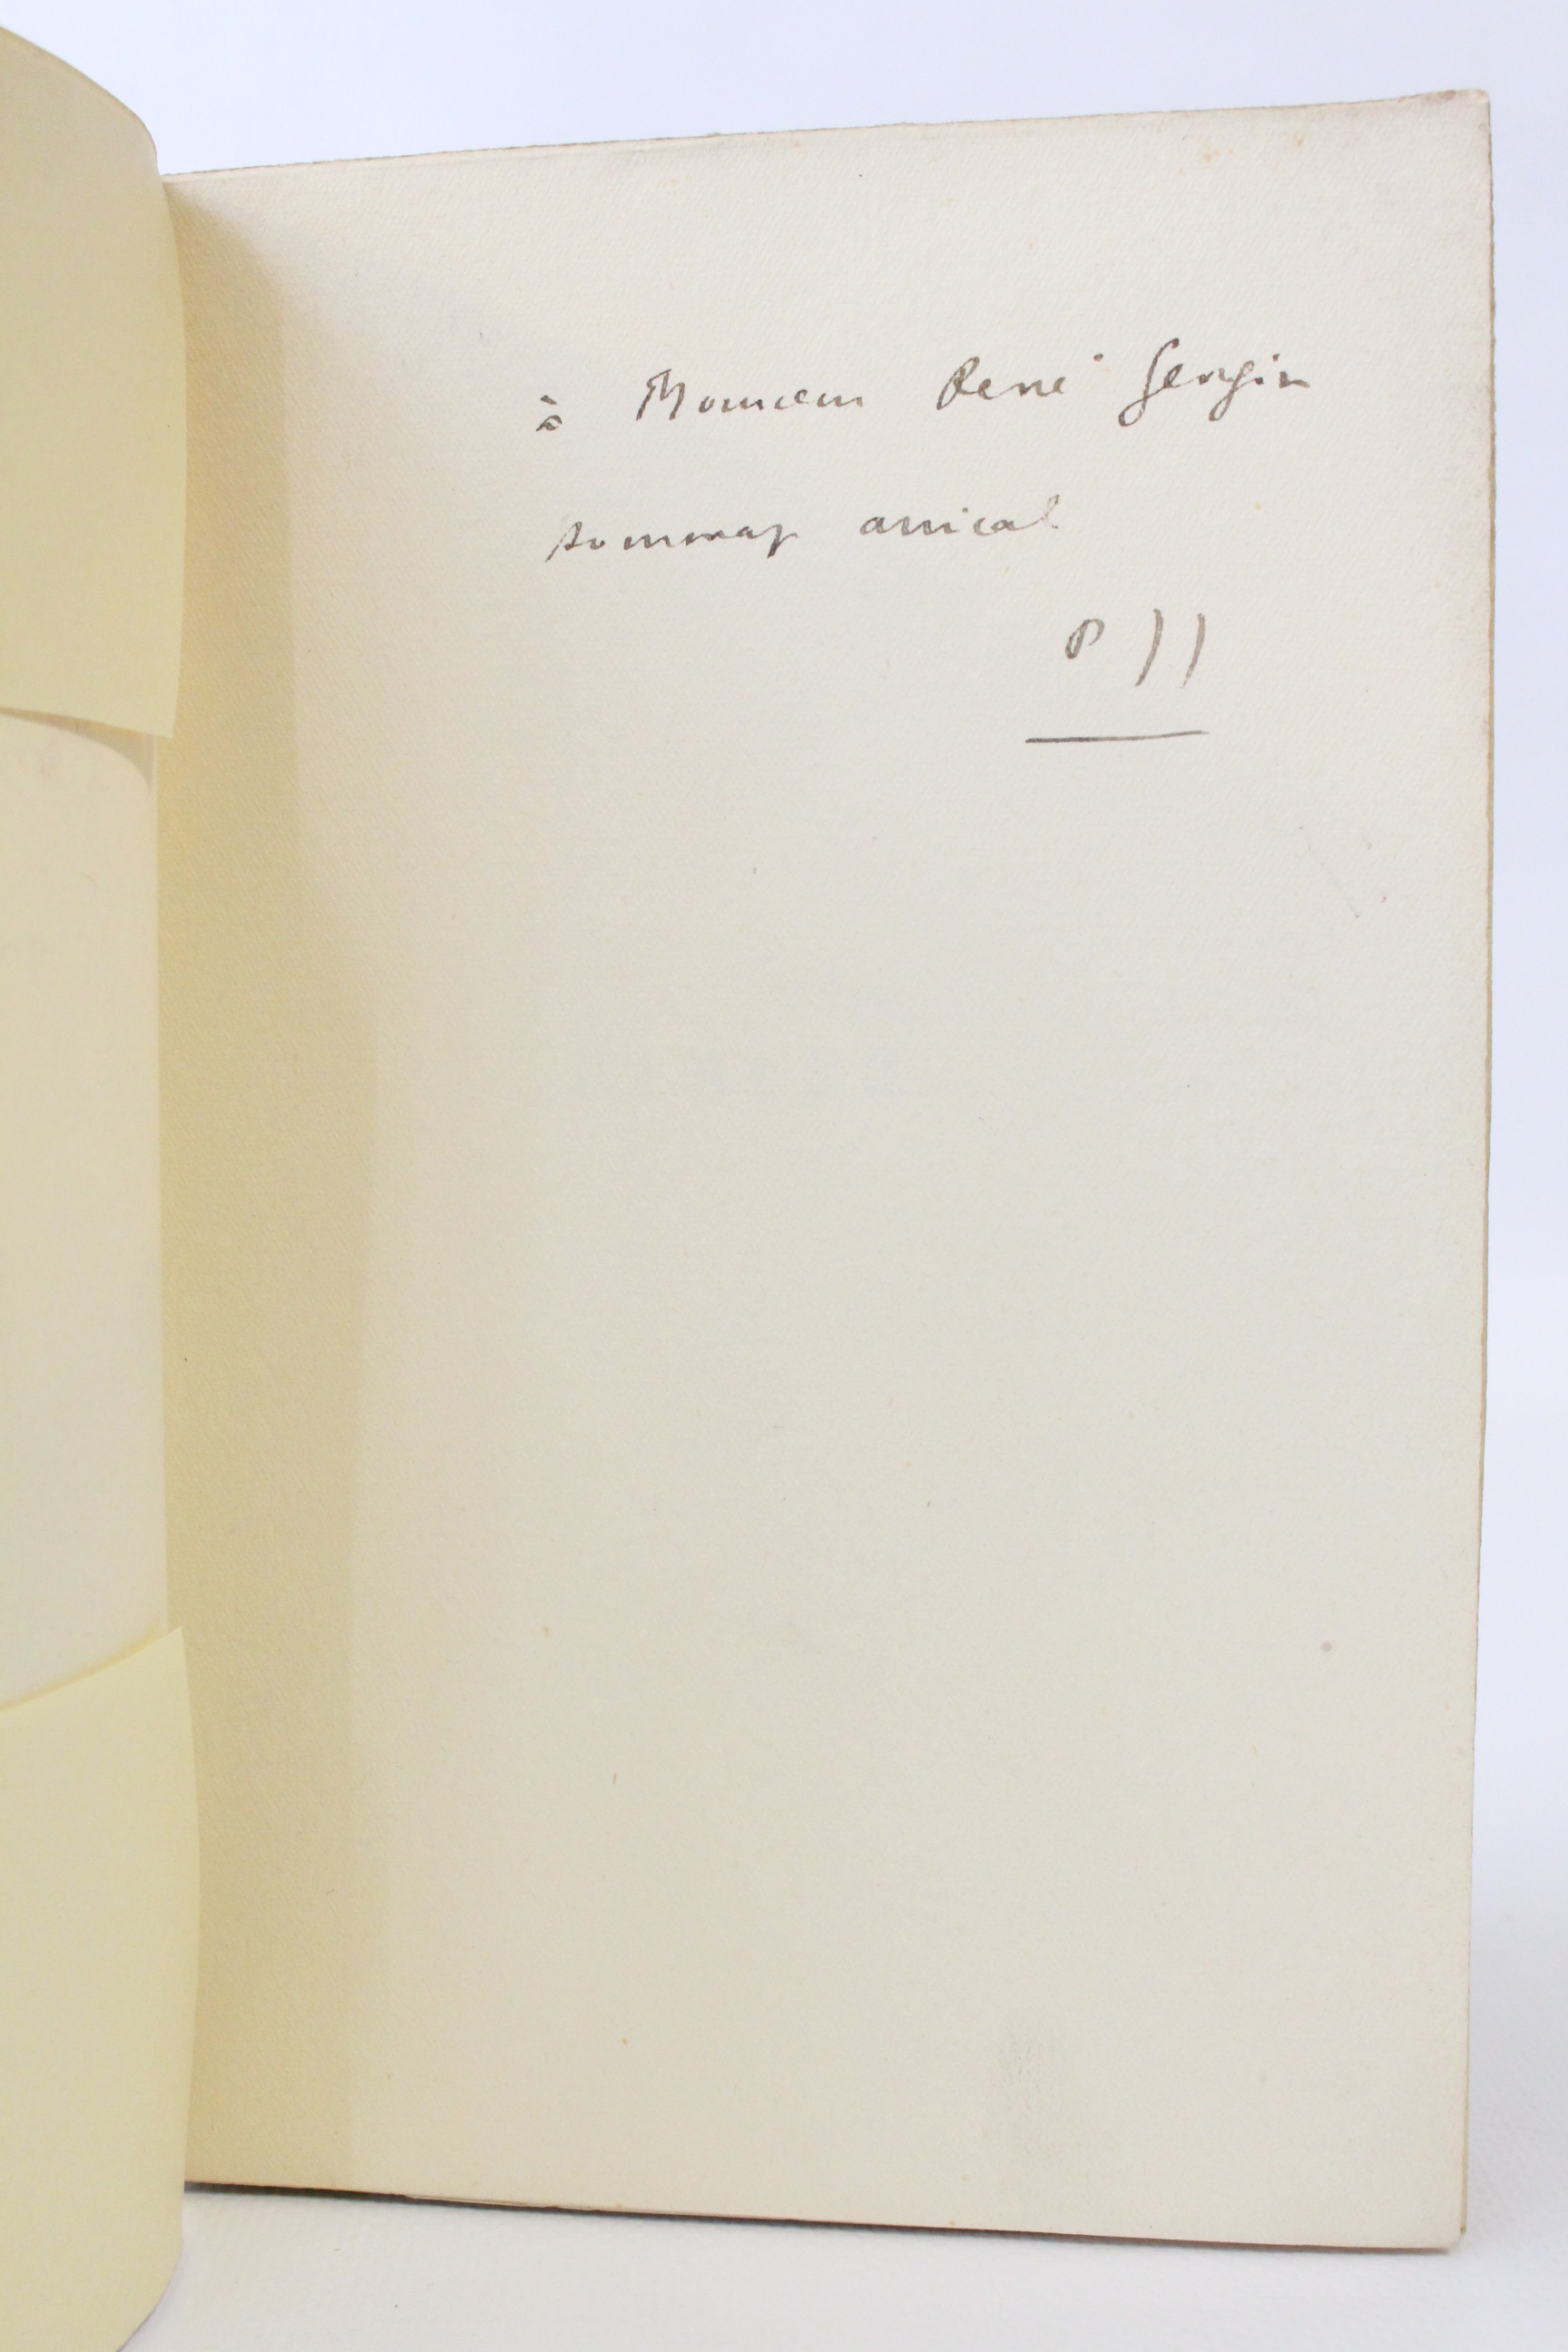 à Monsieur René Gergin
hommage amical
P JJ